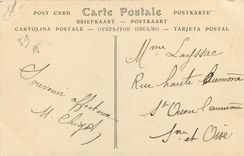 POST CARD Carte Postale POSTKARTE
BRIEFKAART — POSTKAART
CARTOLINA POSTALE — ОТКРЫТОЕ ПИСЬМО — TARJETA POSTAL
Mme Layssac
Rue haute
St Ouen l'aumône
Sne et Oise
Souvenir
affectueux
M.